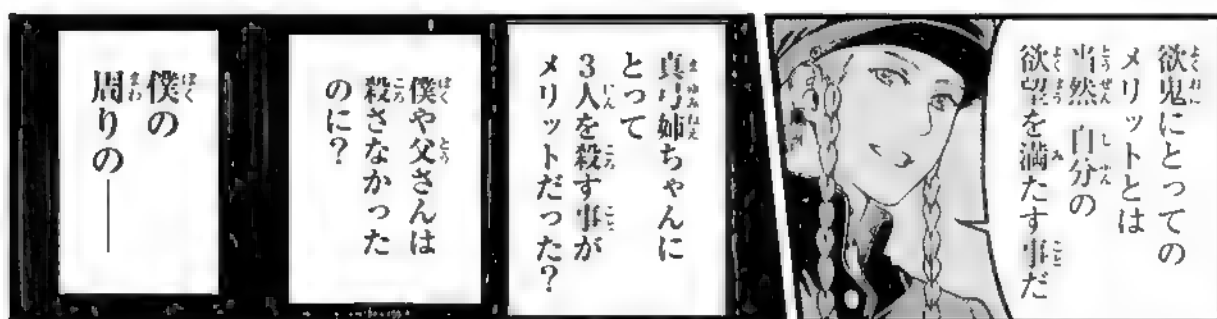 欲鬼にとっての
メリットとは
当然 自分の
欲望を満たす事だ
真弓姉ちゃんに
とって
3人を殺す事が
メリットだった?
僕や父さんは
殺さなかった
のに?
僕の
周りの――